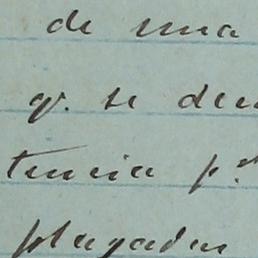 de una
q. se den
tencia p.ª
plagadas